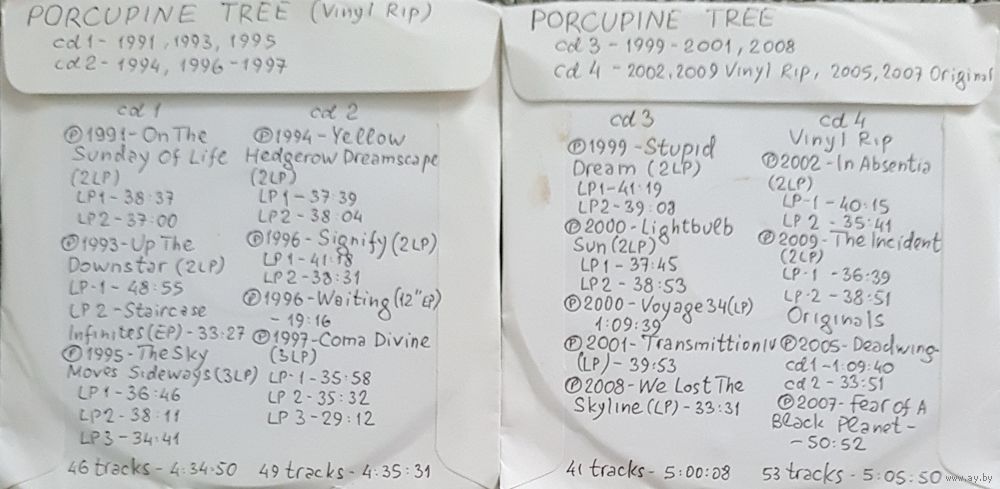 PORCUPINE TREE (Vinyl Rip)
cd 1 - 1991, 1993, 1995
cd 2 - 1994, 1996-1997
cd 1
℗1991-On The
Sunday Of Life
(2LP)
LP1 - 38:37
LP2 - 37:00
℗1993-Up The
Downstar (2LP)
LP-1 - 48:55
LP 2 - Staircase
Infinites (EP) - 33:27
℗1995 - The Sky
Moves Sideways (3LP)
LP1 - 36:46
LP2 - 38:11
LP3 - 34:41
46 tracks - 4:34:50
cd 2
℗1994-Yellow
Hedgerow Dreamscape
(2LP)
LP1 - 37:39
LP2 - 38:04
℗1996 - Signify (2LP)
LP1 - 41:18
LP2 - 38:31
℗1996-Waiting (12" EP)
- 19:16
℗1997-Coma Divine
(3LP)
LP-1 - 35:58
LP 2 - 35:32
LP 3 - 29:12
49 tracks - 4:35:31
PORCUPINE TREE
cd 3 - 1999 - 2001, 2008
cd 4 - 2002, 2009 Vinyl Rip, 2005, 2007 Original
cd 3
℗1999 - Stupid
Dream (2LP)
LP1 - 41:19
LP2 - 39:03
℗2000 - Lightbulb
Sun (2LP)
LP1 - 37:45
LP2 - 38:53
℗2000 - Voyage 34 (LP)
1:09:39
℗2001 - Transmittion IV
(LP) - 39:53
℗2008 - We Lost The
Skyline (LP) - 33:31
41 tracks - 5:00:08
cd 4
Vinyl Rip
℗2002 - In Absentia
(2LP)
LP-1 - 40:15
LP 2 - 35:41
℗2009 - The Incident
(2LP)
LP-1 - 36:39
LP-2 - 38:51
Originals
℗2005 - Deadwing-
cd1 - 1:09:40
cd2 - 33:51
℗2007 - Fear of A
Black Planet -
- 50:52
53 tracks - 5:05:50
www.ay.by